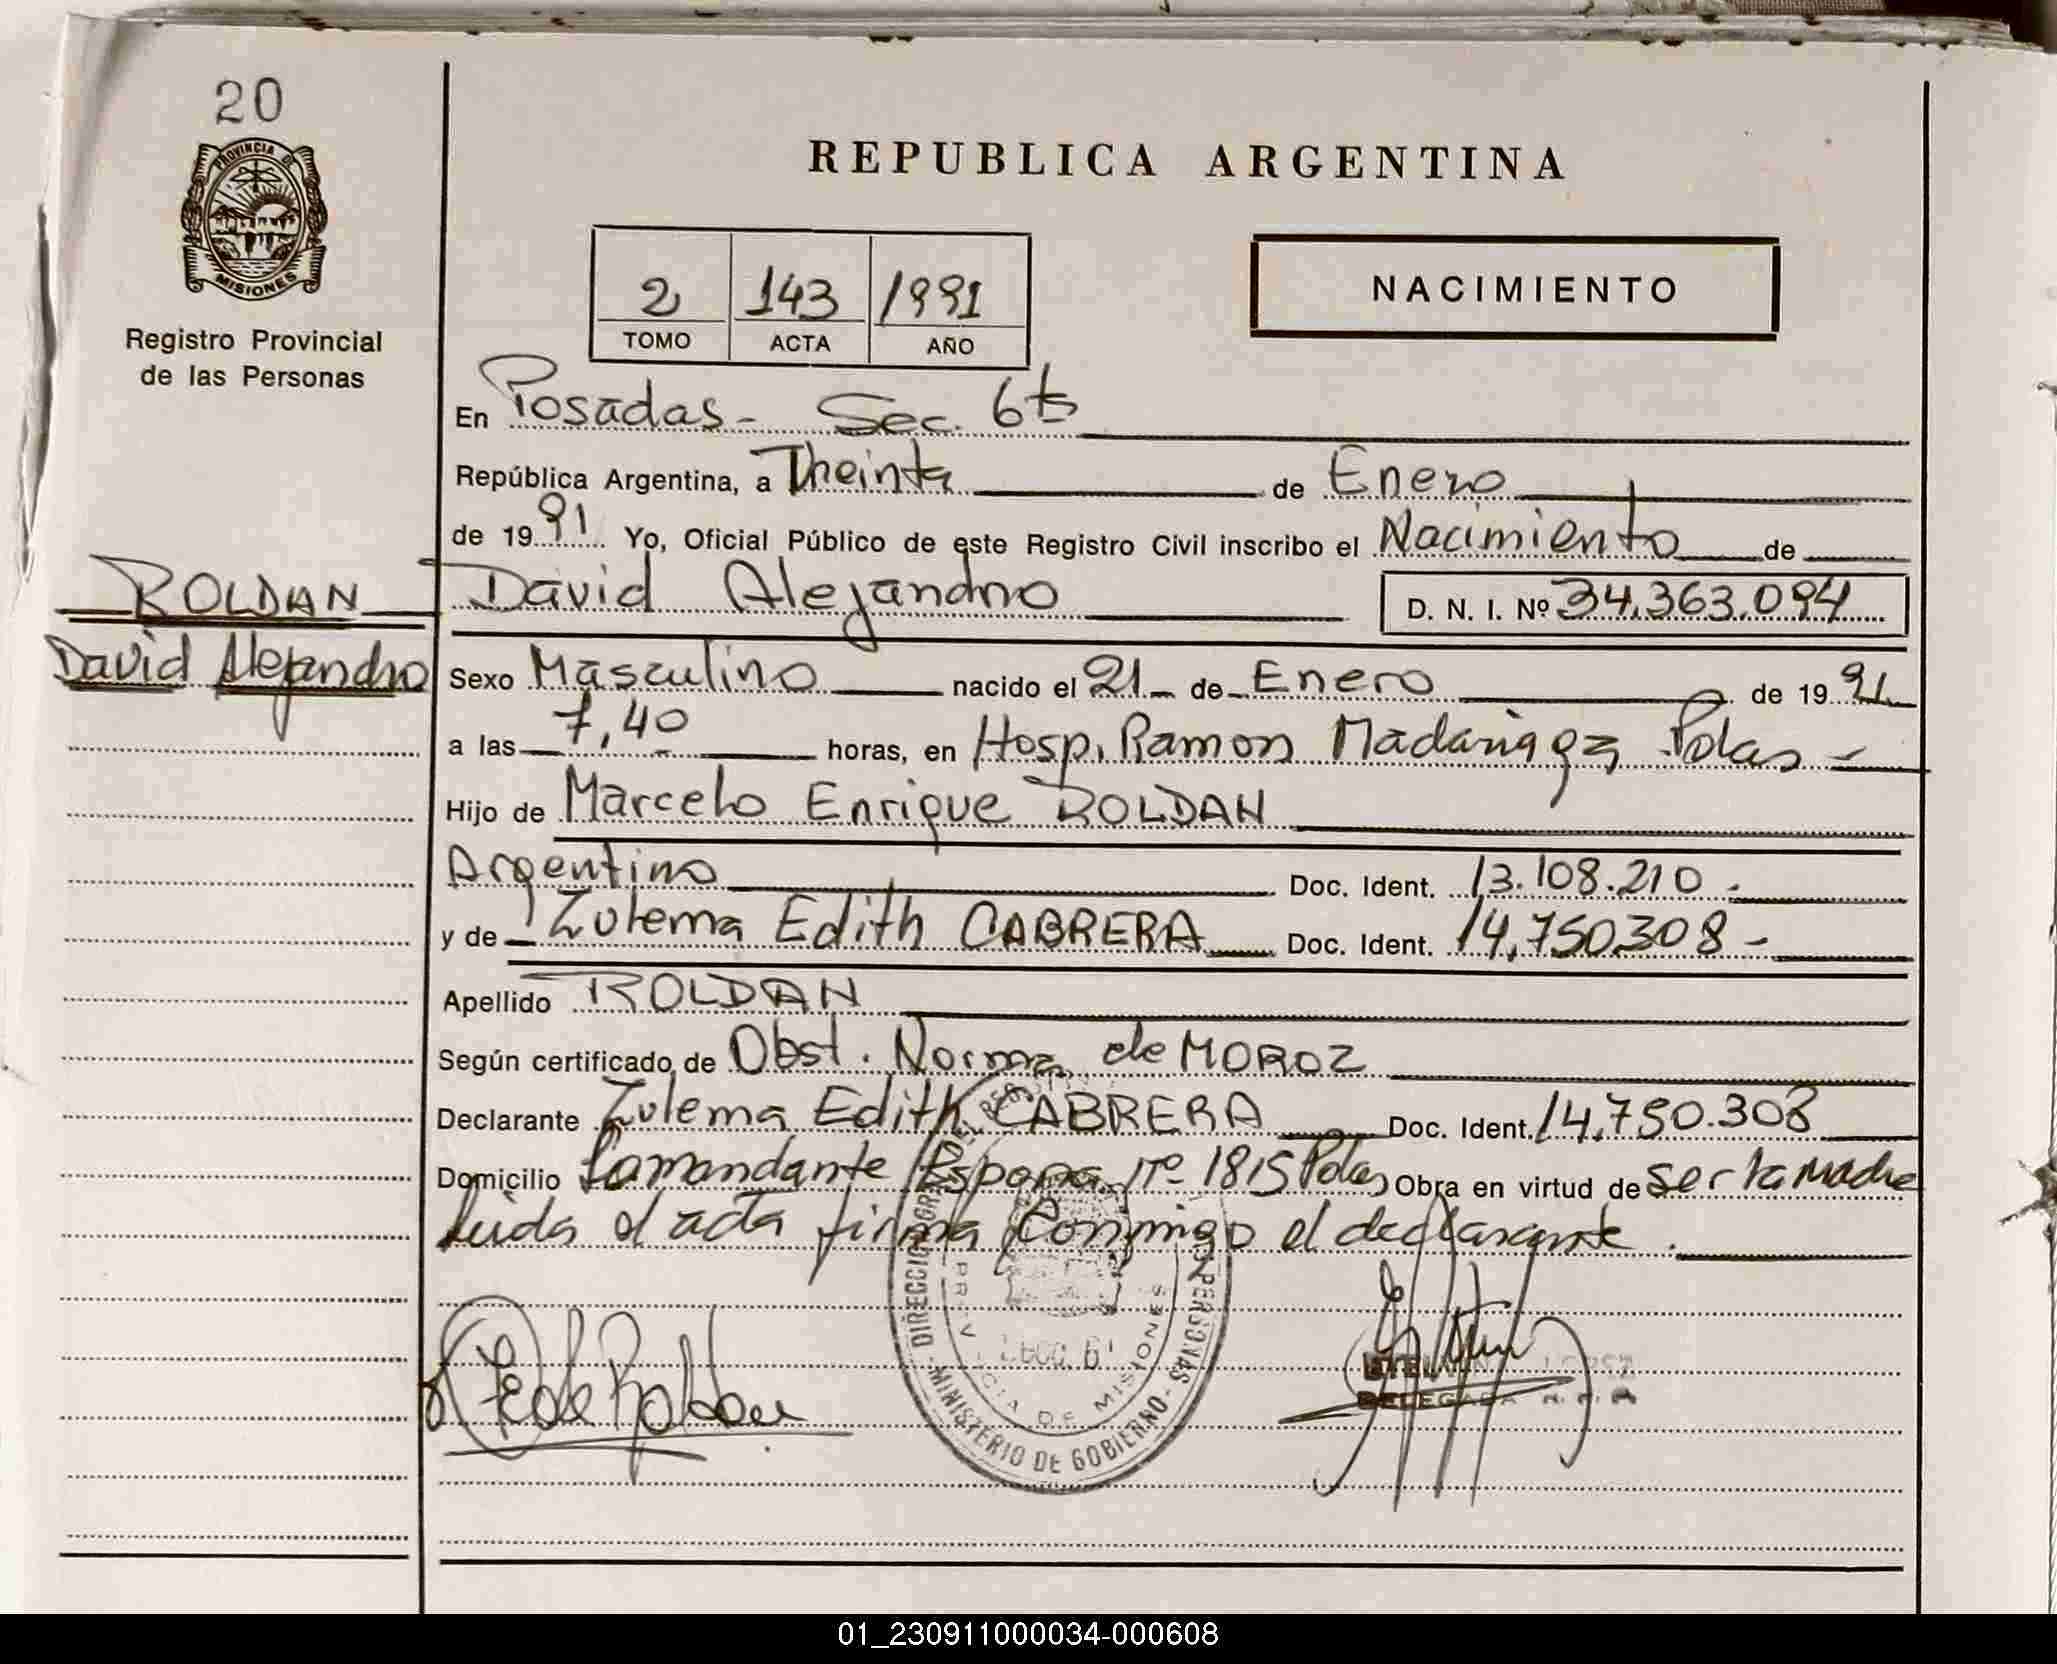 20
PROVINCIA DE
MISIONES
Registro Provincial
de las Personas
REPUBLICA ARGENTINA
2 143 1991
TOMO ACTA AÑO
NACIMIENTO
En Posadas - Sec. 6ta
República Argentina, a Treinta de Enero
de 1991 Yo, Oficial Público de este Registro Civil inscribo el Nacimiento de
ROLDAN
David Alejandro
David Alejandro D. N. I. Nº 34.363.094
Sexo Masculino nacido el 21 de Enero de 1991
a las 7,40 horas, en Hosp. Ramon Madariaga Pdas -
Hijo de Marcelo Enrique ROLDAN
Argentino Doc. Ident. 13.108.210 -
y de Zulema Edith CABRERA Doc. Ident. 14.750.308 -
Apellido ROLDAN
Según certificado de Obst. Norma de MOROZ
Declarante Zulema Edith CABRERA Doc. Ident. 14.750.308
Domicilio Comandante Espora nº 1815 Pdas Obra en virtud de ser la madre
Leida el acta firma Conmigo el declarante.
DIRECCION PERSONAS
PROVINCIA DE MISIONES
MINISTERIO DE GOBIERNO
de Roldan
LOPEZ
DELEGADA
01_230911000034-000608